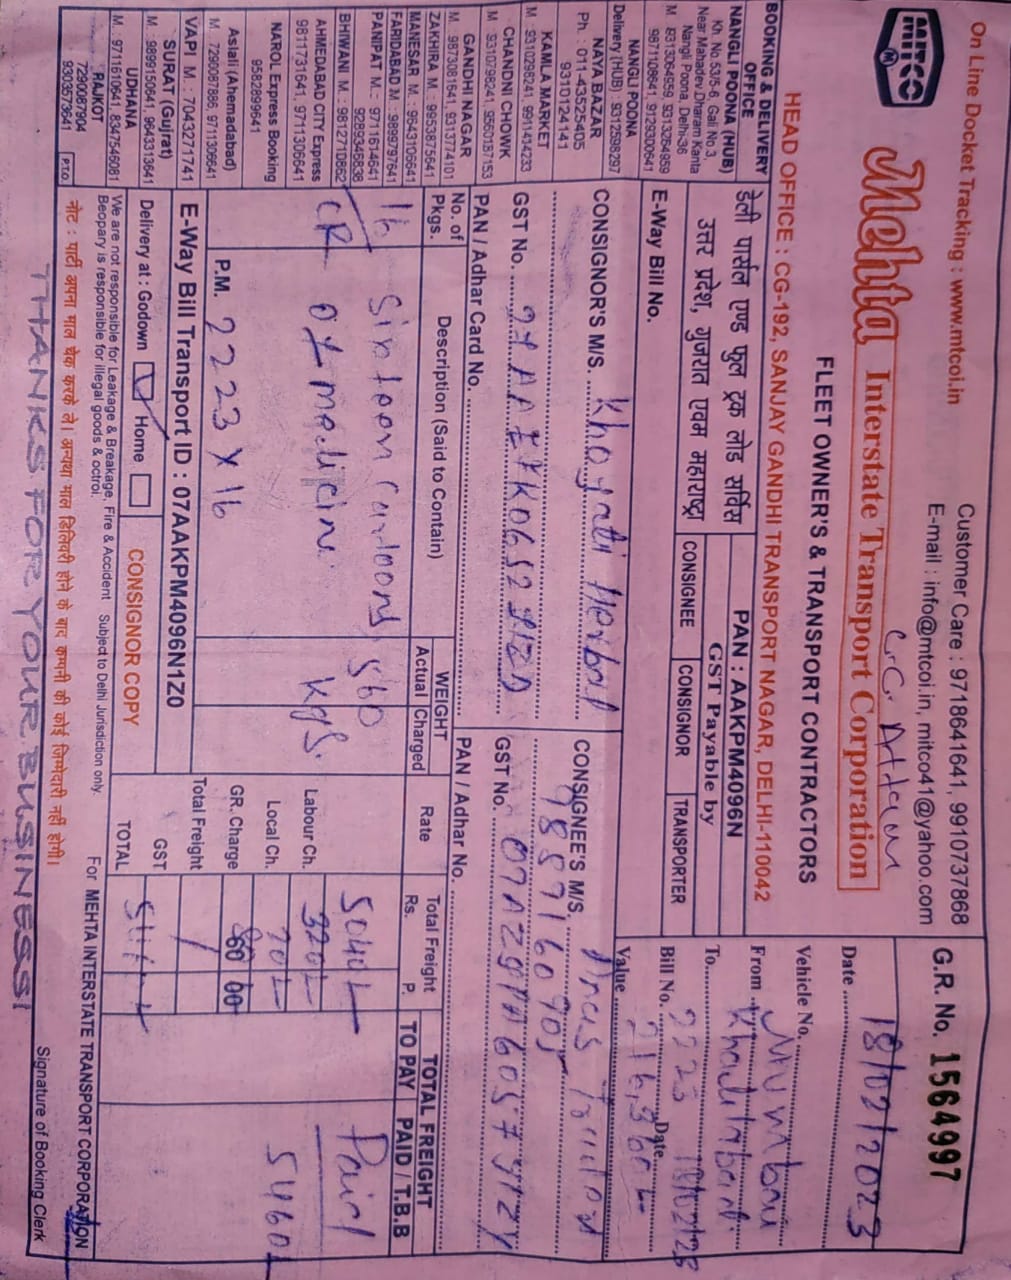 On Line Docket Tracking : www.mtcoi.in
Customer Care : 9718641641, 9910737868
E-mail : info@mtcoi.in, mitco41@yahoo.com
G.R. No. 1564997
MITCO
Mehta Interstate Transport Corporation
FLEET OWNER'S & TRANSPORT CONTRACTORS
HEAD OFFICE : CG-192, SANJAY GANDHI TRANSPORT NAGAR, DELHI-110042
Date 18/02/2023
Vehicle No.
From Mumbai
To
Bill No. 2223 Date 18/02/23
Value
BOOKING & DELIVERY
OFFICE
NANGLI POONA (HUB)
Kh. No. 53/5-6, Gali No.3,
Near Mahadev Dharam Kanta
Nangli Poona, Delhi-36
M. 9313064959, 9313264959
9871108641, 9129300641
NANGLI POONA
Delivery (HUB) : 9312598297
NAYA BAZAR
Ph. : 011-43525405
9310124141
KAMLA MARKET
M. 9310298241, 9911414233
CHANDNI CHOWK
M. 9310798241, 9560187153
GANDHI NAGAR
M. 9873081641, 9313774101
ZAKHIRA M. : 9953875641
MANESAR M. : 9643106641
FARIDABAD M. : 9899797641
PANIPAT M. : 9711614641
9289346838
BHIWANI M. : 9812710862
AHMEDABAD CITY Express
9811731641, 9711306641
NAROL Express Booking
9582899641
Aslali (Ahemadabad)
M. 7290087886, 9711306641
VAPI M. : 7043271741
SURAT (Gujrat)
M. : 9899150641, 9643313641
UDHANA
M. : 9711610641, 8347546081
RAJKOT
7290087904
9303573641
P.T.O
डेली पार्सल एण्ड फुल ट्रक लोड सर्विस
उत्तर प्रदेश, गुजरात एवम महाराष्ट्रा
PAN : AAKPM4096N
GST Payable by
CONSIGNEE CONSIGNOR TRANSPORTER
E-Way Bill No.
CONSIGNOR'S M/S. Khayati Herbal
CONSIGNEE'S M/S.
GST No.
GST No.
PAN / Adhar Card No.
PAN / Adhar No.
No. of Pkgs.
Description (Said to Contain)
WEIGHT
Actual Charged
Rate
Total Freight
Rs. P.
TOTAL FREIGHT
TO PAY PAID / T.B.B
16 Sixteen cartoons 560 Kgs.
of medicin
5040 Paid
Labour Ch. 320
Local Ch.
GR. Charge 60 00
Total Freight
GST
TOTAL
P.M. 2223 X 16
E-Way Bill Transport ID : 07AAKPM4096N1Z0
Delivery at : Godown Home
CONSIGNOR COPY
We are not responsible for Leakage & Breakage, Fire & Accident Subject to Delhi Jurisdiction only.
Beopary is responsible for illegal goods & octroi.
For MEHTA INTERSTATE TRANSPORT CORPORATION
नोट : पार्टी अपना माल चेक करके ले। अन्यथा माल डिलिवरी होने के बाद कम्पनी की कोई जिम्मेदारी नहीं होगी।
Signature of Booking Clerk
THANKS FOR YOUR BUSINESS!